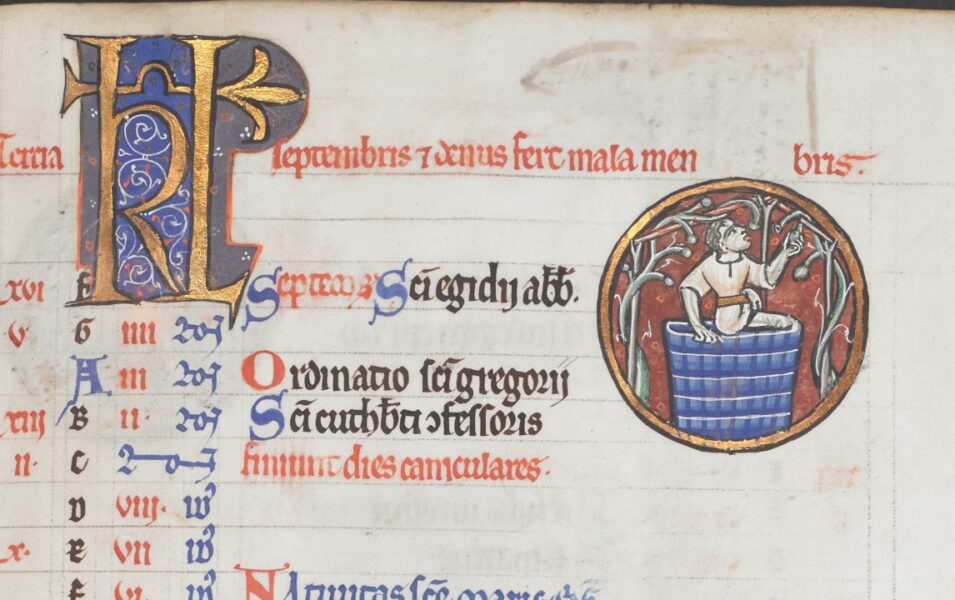 Tercia KL septembris ⁊ denus fert mala men bris.
xvi f Septembris Sci egidij abb.
v G iiii noɳ
A iii noɳ Ordinatio sci gregorij
xiii B ii· noɳ Sci cuthb'ti ↄfessoris
ii· c Non finiunt dies caniculares·
D viii· id'
x· e vii id'
f vi id' Natiuitas sce marie